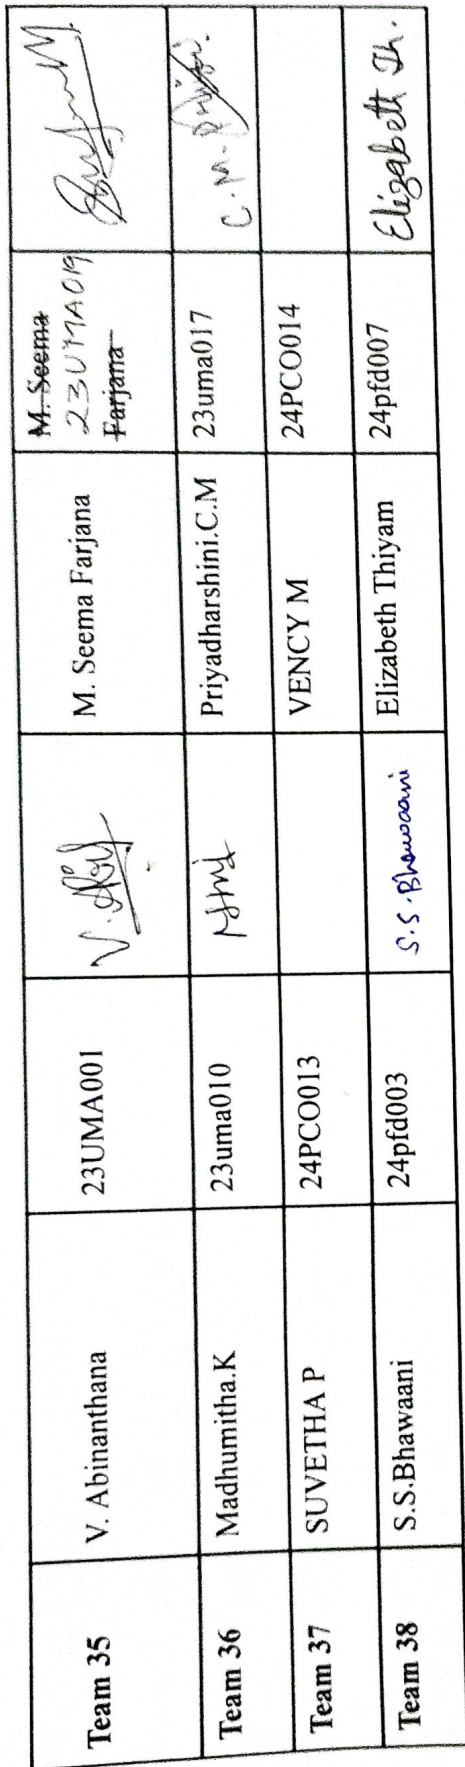 Team 35 V. Abinanthana 23UMA001 M. Seema Farjana M. Seema
23UMA019
Farjana
Team 36 Madhumitha.K 23uma010 Priyadharshini.C.M 23uma017 C.M.
Team 37 SUVETHA P 24PCO013 VENCY M 24PCO014
Team 38 S.S.Bhawaani 24pfd003 S.S.Bhawaani Elizabeth Thiyam 24pfd007 Elizabeth Th.